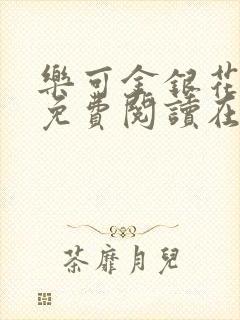 樂可金銀花
免費閱讀在
荼靡月兒